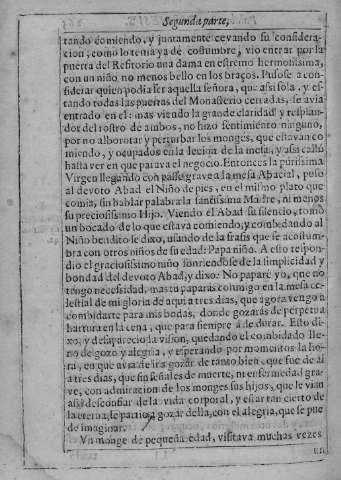 Segunda parte,
tando comiendo, y juntamente cevando su considera-
cion, como lo tenia ya de costumbre, vio entrar por la
puerta del Refitorio una dama en estremo hermosissima,
con un niño no menos bello en los braços. Pusose a con-
siderar quien podia ser aquella señora, que assi sola, y es-
tando todas las puertas del Monasterio cerradas, se avia
entrado en el: mas viendo la grande claridad y resplan-
dor del rostro de ambos, no hizo sentimiento ninguno,
por no alborotar y perturbar los monges, que estavan co
miendo, y ocupados en la lecion de la mesa, y assi callò
hasta ver en que parava el negocio. Entonces la purissima
Virgen llegando con passo grave a la mesa Abacial, puso
al devoto Abad el Niño de pies, en el mismo plato que
comia, sin hablar palabra la santissima Madre, ni menos
su preciosissimo Hijo. Viendo el Abad su silencio, tomò
un bocado de lo que estava comiendo, y combidando al
Niño bendito le dixo, usando de la frasis que se acostum-
bra con otros niños de su edad: Papa niño. A esto respon-
dio el graciosissimo niño sonriendose de la simplicidad y
bondad del devoto Abad, y dixo: No paparè yo, que no
tengo necessidad, mas tu paparàs conmigo en la mesa ce-
lestial de mi gloria de aqui a tres dias, que agora vengo a
combidarte para mis bodas, donde gozaràs de perpetua
hartura en la cena, que para siempre à de durar. Esto di-
xo, y desaparecio la vision, quedando el combidado lle-
no de gozo y alegria, y esperando por momentos la ho-
ra, en que avia de ir a gozar de tanto bien, que fue de aì
a tres dias, que sin señales de muerte, ni enfermedad gra-
ve, con admiracion de los monges sus hijos, que le vian
assi desconfiar de la vida corporal, y estar tan cierto de
la eterna, se partio a gozar della, con el alegria, que se pue
de imaginar.
Un monge de pequeña edad, visitava muchas vezes